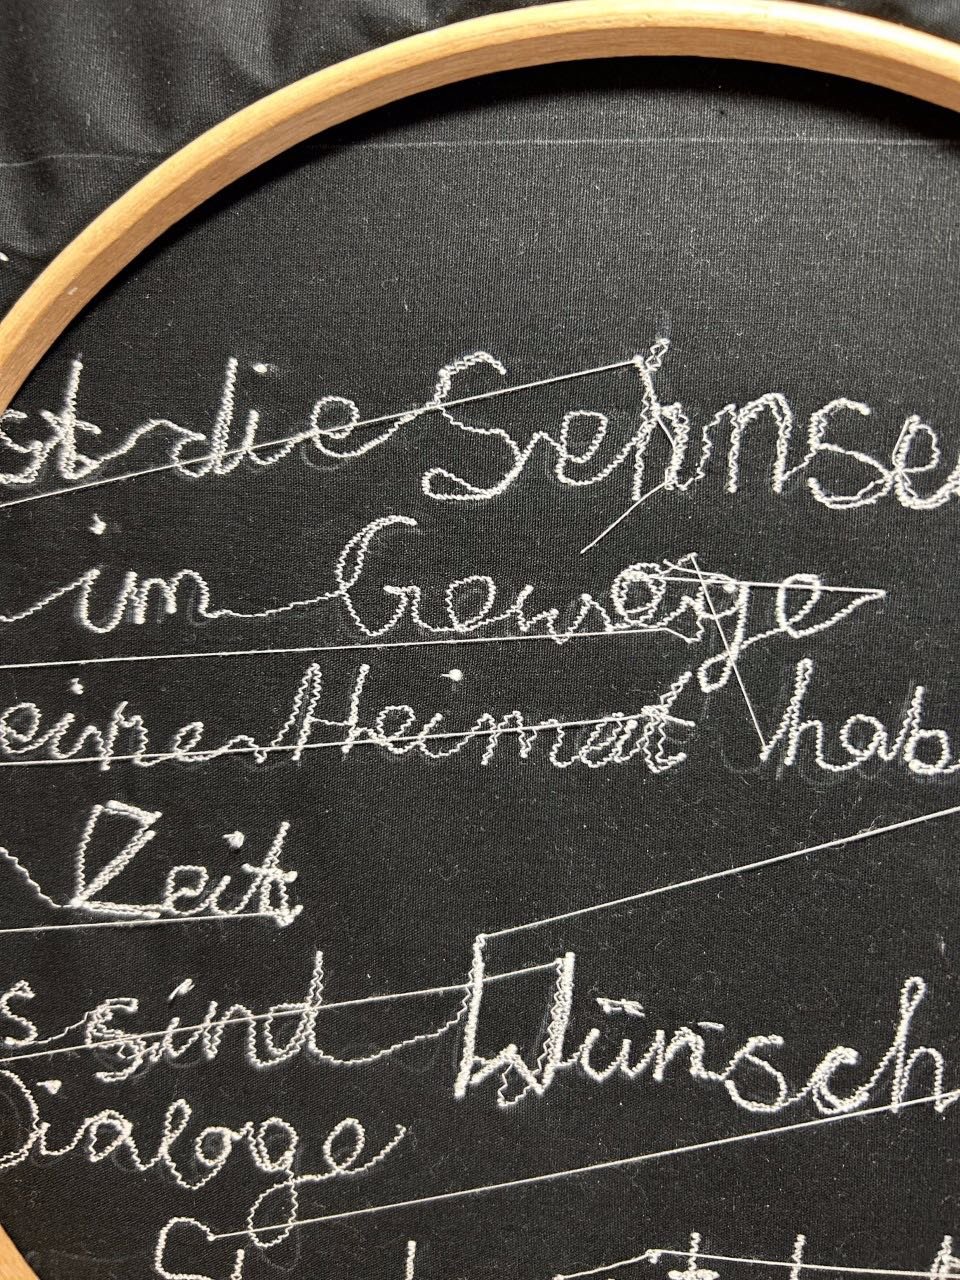 st die Sehnsu
im Gewoge
eine Heimat hab
Zeit
s sind Wünsch
Dialoge